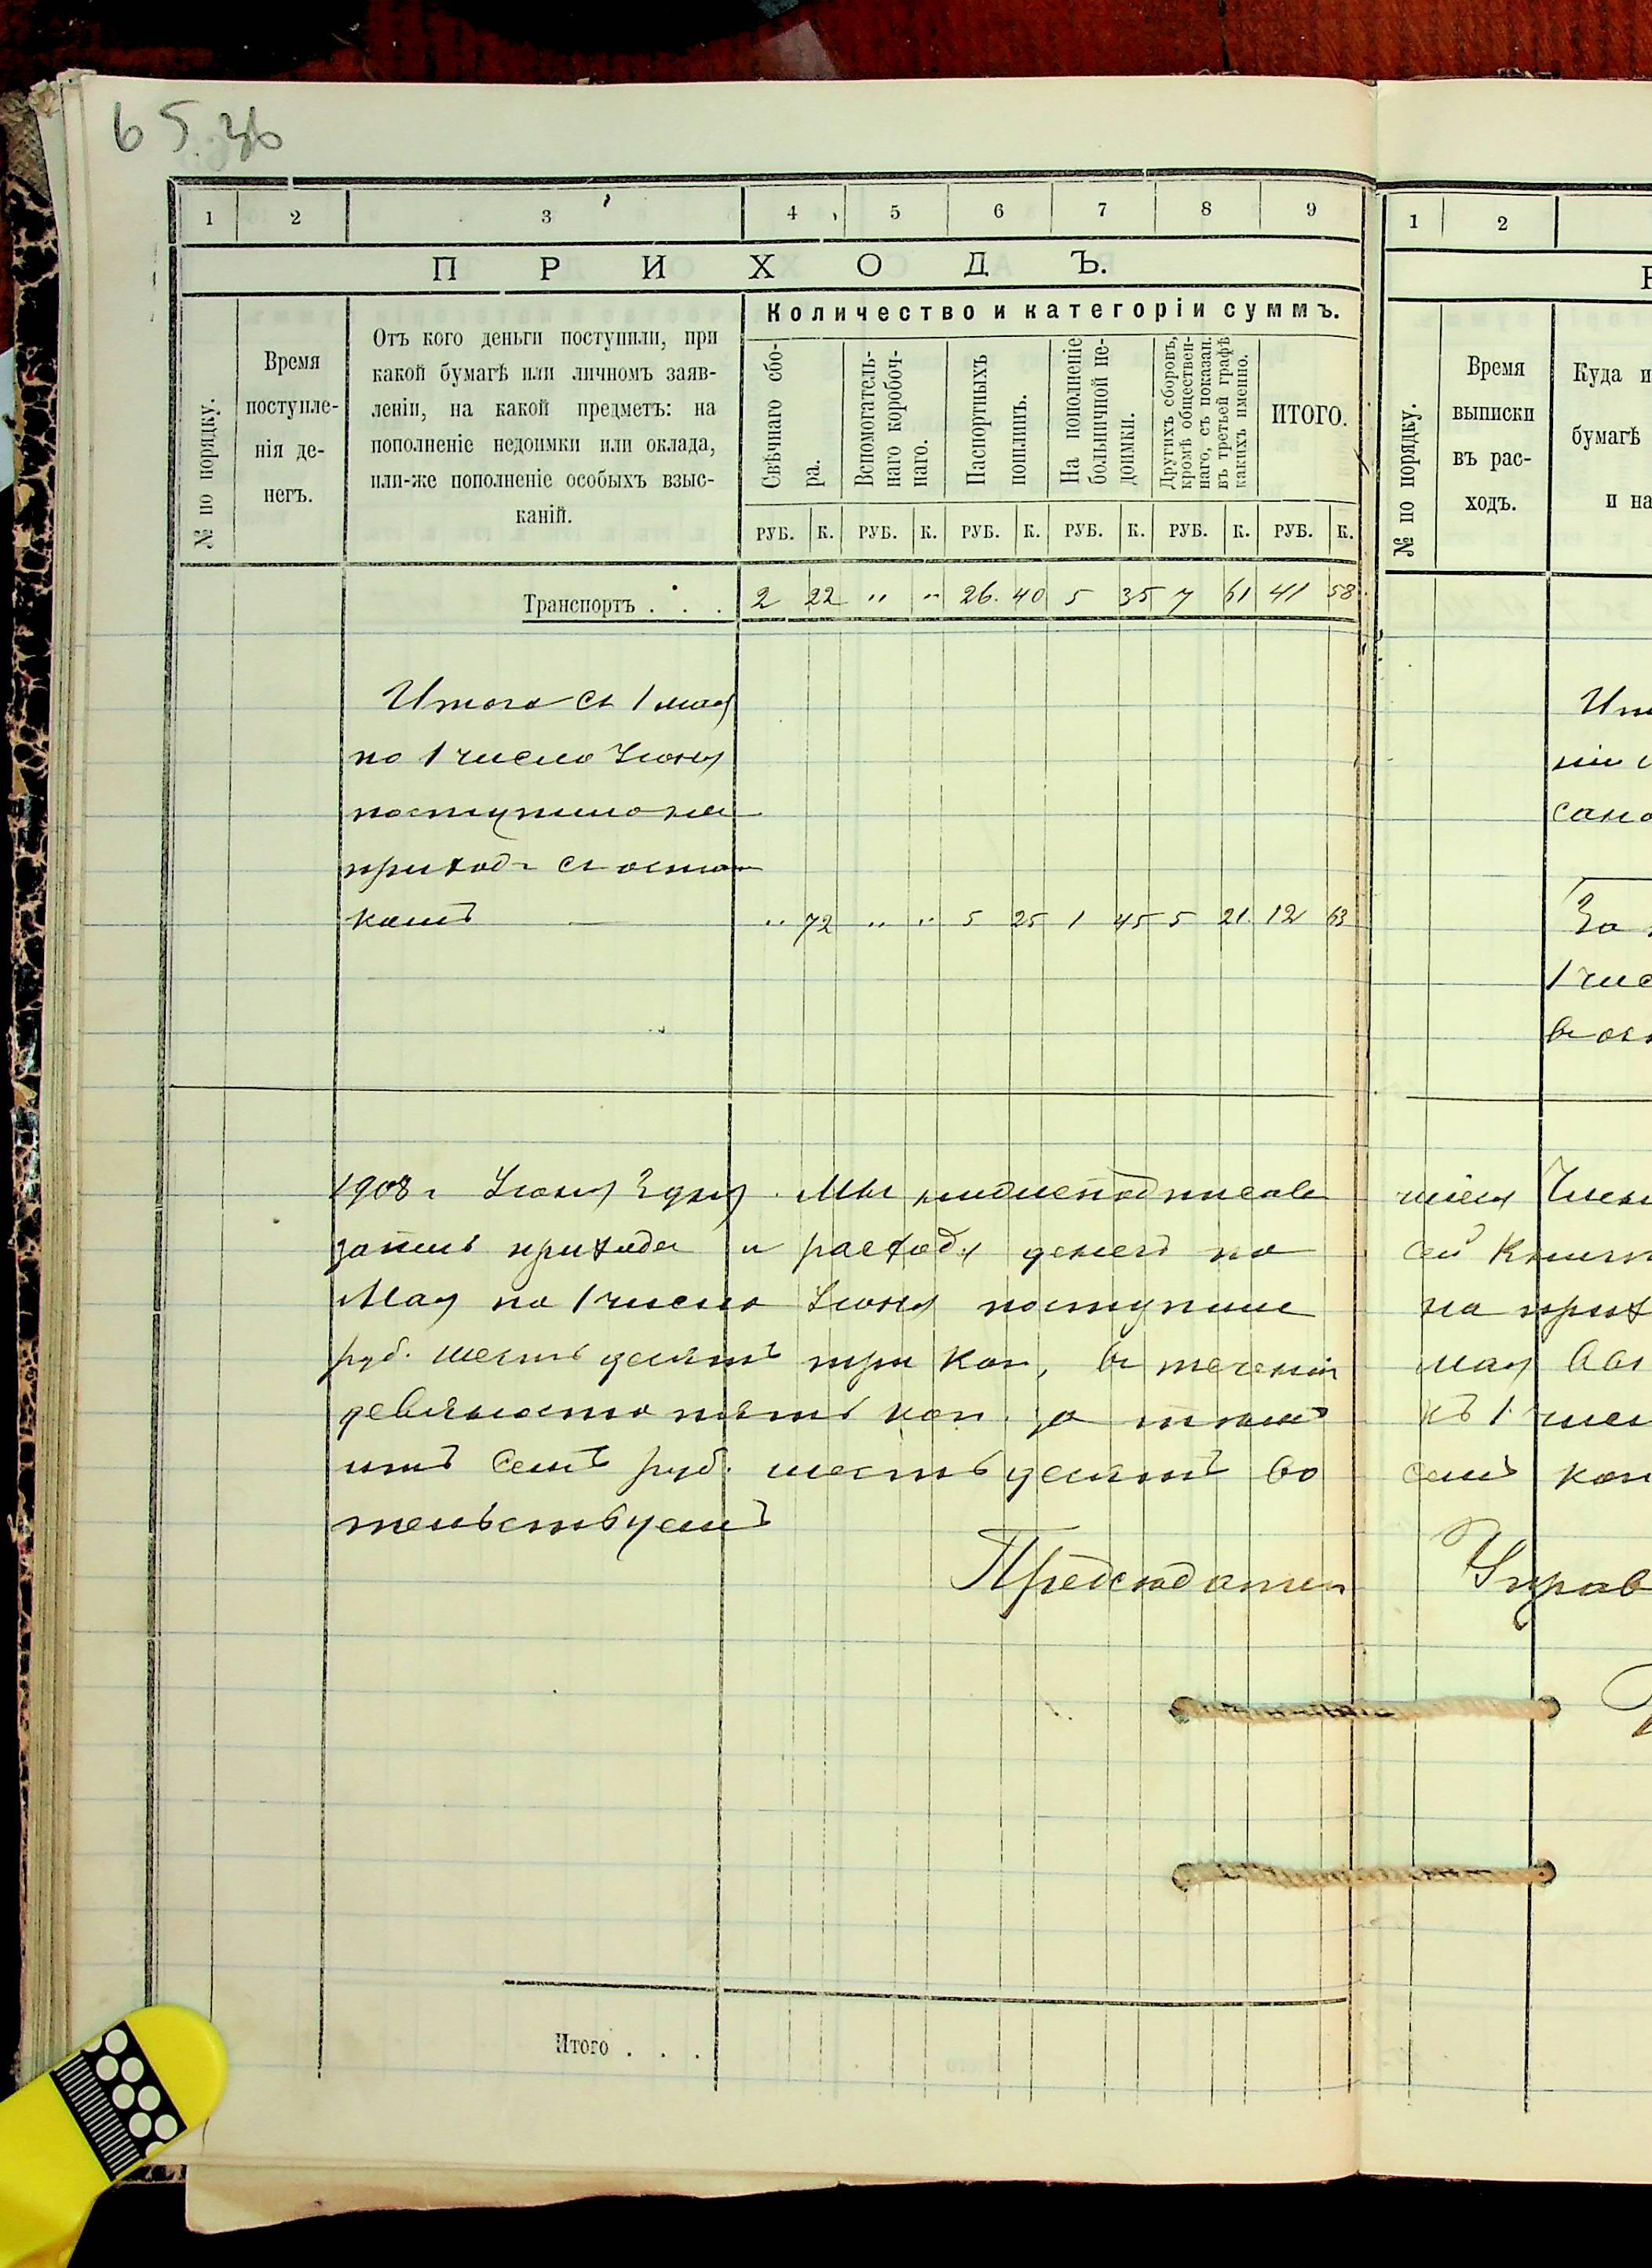 65. 36
1 2 3 4 5 6 7 8 9
ПРИХОДЪ.
№ по порядку.
Время поступле-
нія де-
негъ.
Отъ кого деньги поступили, при
какой бумагѣ или личномъ заяв-
леніи, на какой предметъ: на
пополненіе недоимки или оклада,
или-же пополненіе особыхъ взыс-
каній.
Количество и категоріи суммъ.
Свѣчнаго сбо-
ра.
Вспомогатель-
наго коробоч-
наго.
Паспортныхъ
пошлинъ.
На пополненіе
больничной не-
доимки.
Другихъ сборовъ,
кромѣ обществен-
наго, съ показан.
въ третьей графѣ
какихъ именно.
ИТОГО.
РУБ. К. РУБ. К. РУБ. К. РУБ. К. РУБ. К. РУБ. К.
Транспортъ . . . 2 22 " " 26. 40 5 35 7 61 41 58
Итого съ 1 мая
по 1 число Іюня
поступило на
приходъ съ остат
комъ — " 72 " " 5 25 1 45 5 21 12 63
1908 г Іюня 3 дня. Мы нижеподписав
запись прихода и расхода денегъ по
Мая по 1 число Іюня поступило
руб. шестьдесятъ три коп, въ теченіи
девяносто пять коп. за
семъ руб. шестьдесятъ во
тельствуемъ
Предсѣдатель
Итого . . .
1 2
№ по порядку.
Время
выписки
въ рас-
ходъ.
Куда и
бумагѣ
и на
сано
За
1 чис
шіеся Члены
сей книги
на прих
мая
къ 1 чис
семь коп
Управ